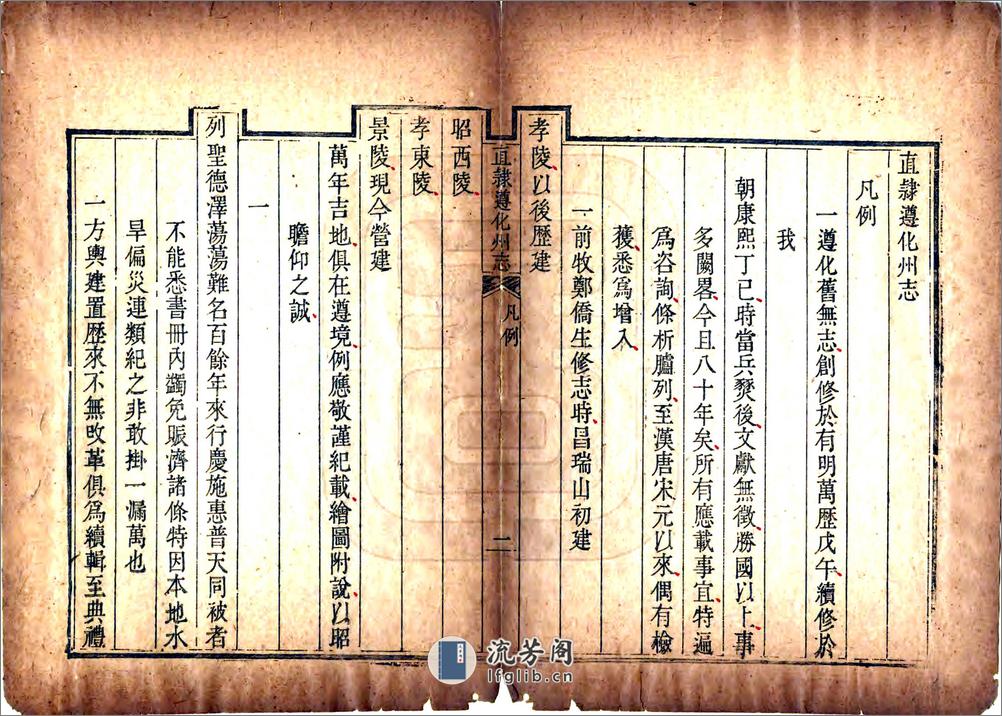 直隸遵化州志
凡例
一遵化舊無志創修於有明萬歷戊午續修於
我
朝康熙丁巳時當兵燹後文獻無徵勝國以上事
多闕畧今且八十年矣所有應載事宜特遍
爲咨詢條析臚列至漢唐宋元以來偶有檢
獲悉爲增入
一前牧鄭僑生修志時昌瑞山初建
孝陵以後歷建
直隸遵化州志 凡例 二
昭西陵
孝東陵
景陵現今營建
萬年吉地俱在遵境例應敬謹紀載繪圖附說以昭
瞻仰之誠
一
列聖德澤蕩蕩難名百餘年來行慶施惠普天同被者
不能悉書冊內蠲免賑濟諸條特因本地水
旱偏災連類紀之非敢掛一漏萬也
一方輿建置歷來不無改革俱爲續輯至典禮
流芳阁
lfglib.cn